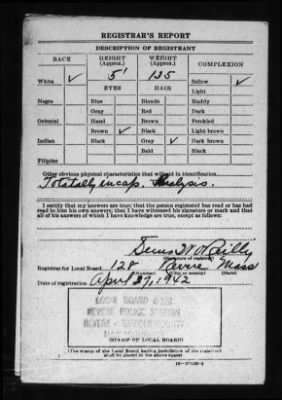 REGISTRAR'S REPORT
DESCRIPTION OF REGISTRANT
RACE HEIGHT (Approx.) WEIGHT (Approx.) COMPLEXION
White ✓ 5' 125 Sallow ✓
EYES HAIR Light
Negro Blue Blonde Ruddy
Gray Red Dark
Oriental Hazel Brown Freckled
Brown ✓ Black Light brown
Indian Black Gray ✓ Dark brown
Bald Black
Filipino
Other obvious physical characteristics that will aid in identification
Totally incap.
I certify that my answers are true; that the person registered has read or has had
read to him his own answers; that I have witnessed his signature or mark and that
all of his answers of which I have knowledge are true, except as follows:
(Signature of registrar)
Registrar for Local Board 128 Revere Mass
(Number) (City or county) (State)
Date of registration April 27, 1942
LOCAL BOARD 128
REVERE POLICE STATION
REVERE - SUFFOLK COUNTY
(STAMP OF LOCAL BOARD)
(The stamp of the Local Board having jurisdiction of the registrant
shall be placed in the above space)